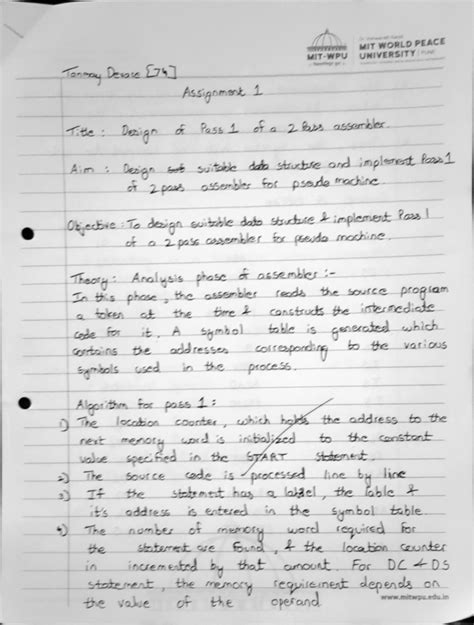 MIT-WPU
MIT WORLD PEACE
UNIVERSITY | PUNE
Tanmay Devare [74]
Assignment 1
Title : Design of Pass 1 of a 2 Pass assembler.
Aim : Design suitable data structure and implement Pass 1
of 2 pass assembler for pseudo machine.
Objective : To design suitable data structure & implement Pass 1
of a 2 pass assembler for pseudo machine.
Theory : Analysis phase of assembler :-
In this phase, the assembler reads the source program
a token at the time & constructs the intermediate
code for it. A symbol table is generated which
contains the addresses corresponding to the various
symbols used in the process.
Algorithm for pass 1 :
1) The location counter, which holds the address to the
next memory word is initialized to the constant
value specified in the START statement.
2) The source code is processed line by line
3) If the statement has a label, the lable &
it's address is entered in the symbol table.
4) The number of memory word required for
the statement are found, & the location counter
in incremented by that amount. For DC & DS
statement, the memory requirement depends on
the value of the operand
www.mitwpu.edu.in